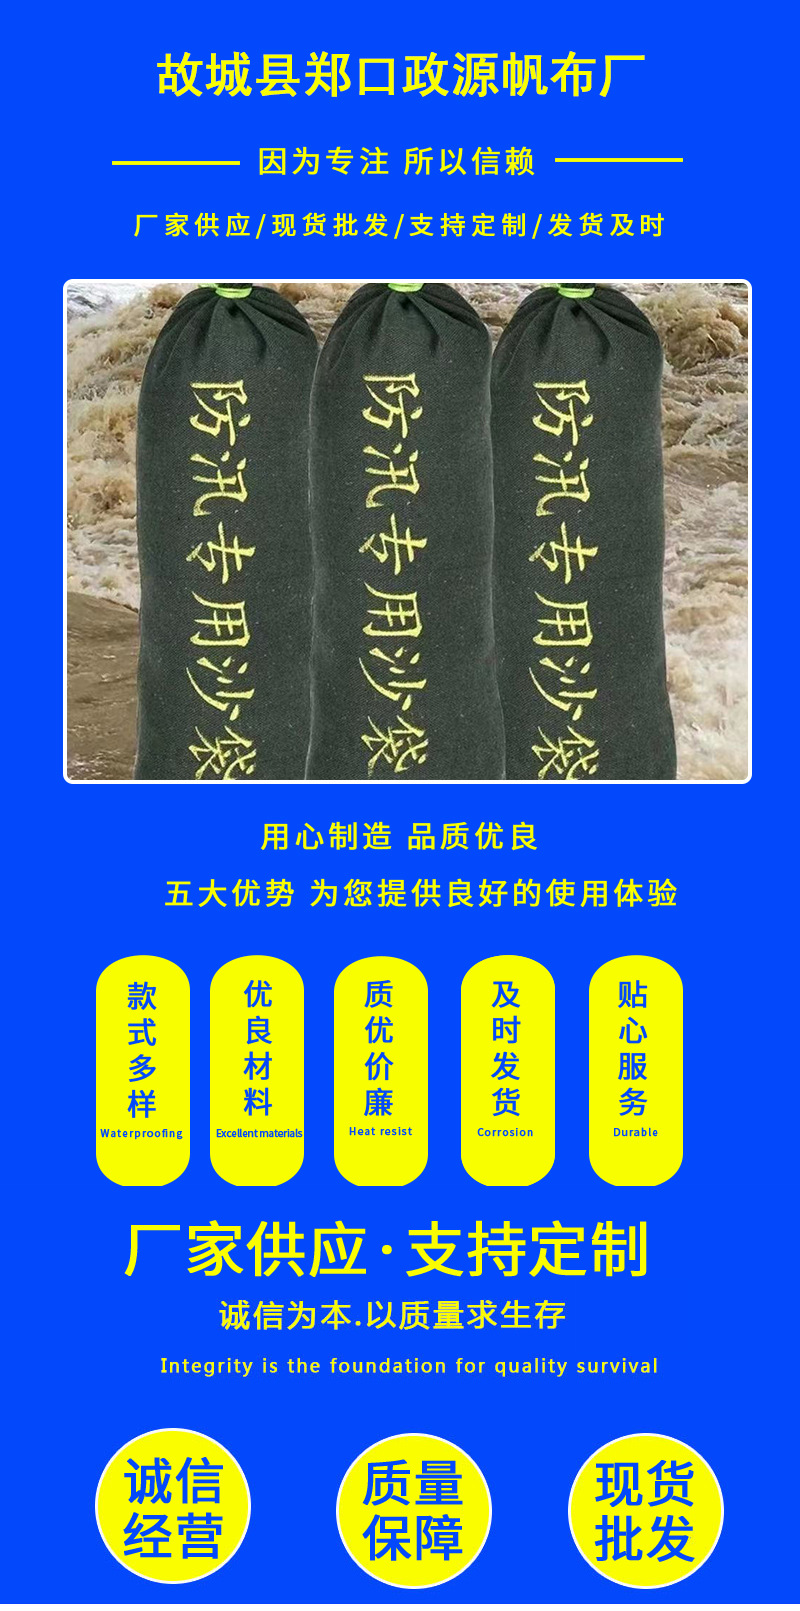 故城县郑口政源帆布厂
因为专注 所以信赖
厂家供应/现货批发/支持定制/发货及时
防汛专用沙袋
防汛专用沙袋
防汛专用沙袋
用心制造 品质优良
五大优势 为您提供良好的使用体验
款式多样
Waterproofing
优良材料
Excellent materials
质优价廉
Heat resist
及时发货
Corrosion
贴心服务
Durable
厂家供应·支持定制
诚信为本.以质量求生存
Integrity is the foundation for quality survival
诚信
经营
质量
保障
现货
批发